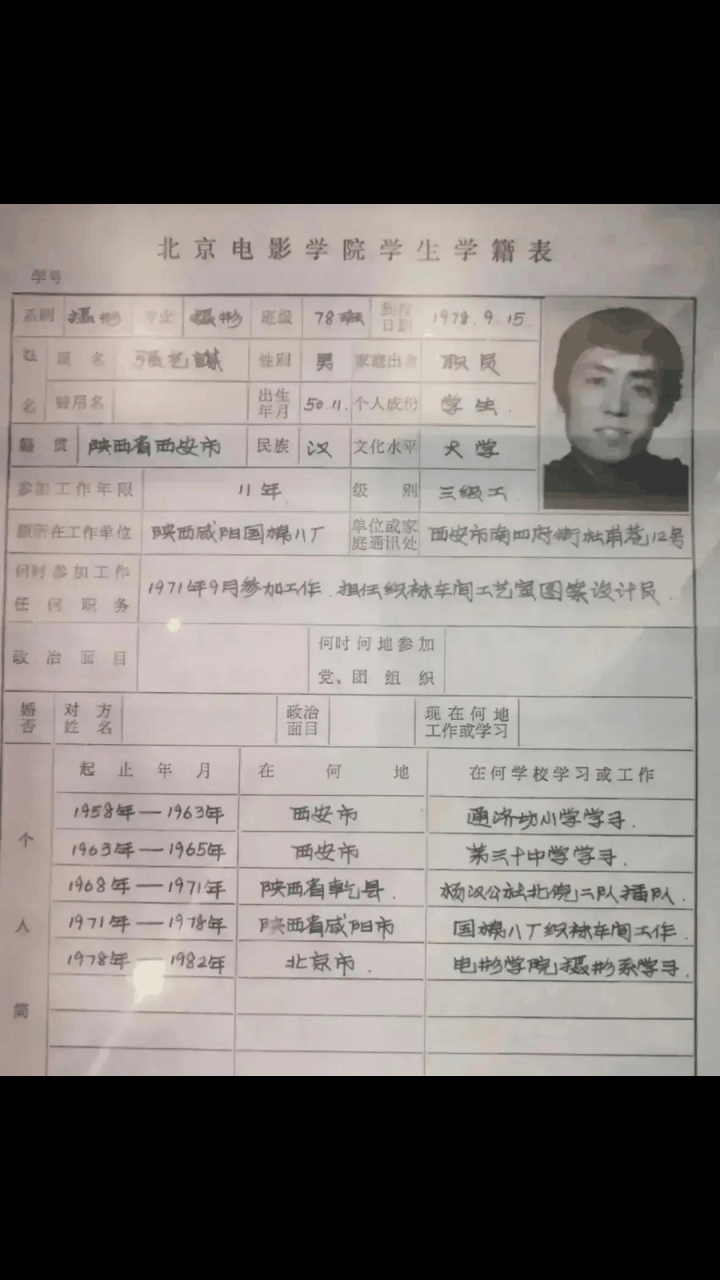 北京电影学院学生学籍表
学号
系别 摄影 专业 摄影 班级 78班 到校日期 1978.9.15
姓名 现名 张艺謀 性别 男 家庭出身 职员
曾用名 出生年月 50.11. 个人成份 学生.
籍贯 陕西省西安市 民族 汉 文化水平 大学
参加工作年限 11年 级别 三级工
原所在工作单位 陕西咸阳国棉八厂 单位或家庭通讯处 西安市南四府街社甫巷12号
何时参加工作任何职务 1971年9月参加工作.担任织袜车间工艺室图案设计员.
政治面目 何时何地参加党、团组织
婚否 对方姓名 政治面目 现在何地工作或学习
个人简 起止年月 在何地 在何学校学习或工作
1958年—1963年 西安市 通济坊小学学习.
1963年—1965年 西安市 第三十中学学习.
1968年—1971年 陕西省乾县. 杨汉公社北倪二队插队.
1971年—1978年 陕西省咸阳市 国棉八厂织袜车间工作.
1978年—1982年 北京市. 电影学院摄影系学习.